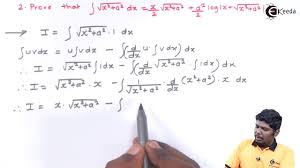 2. Prove that ∫√x²+a² dx = x/2 √x²+a² + a²/2 log|x+√x²+a²|
→ I = ∫√x²+a² · 1 dx
∫u v dx = u∫v dx - ∫(d/dx u · ∫v dx) dx
∴ I = √x²+a² ∫1 dx - ∫(d/dx √x²+a² · ∫1 dx) dx
∴ I = √x²+a² · x - ∫ 1/√x²+a² · d/dx (x²+a²) · x dx
∴ I = x · √x²+a² - ∫